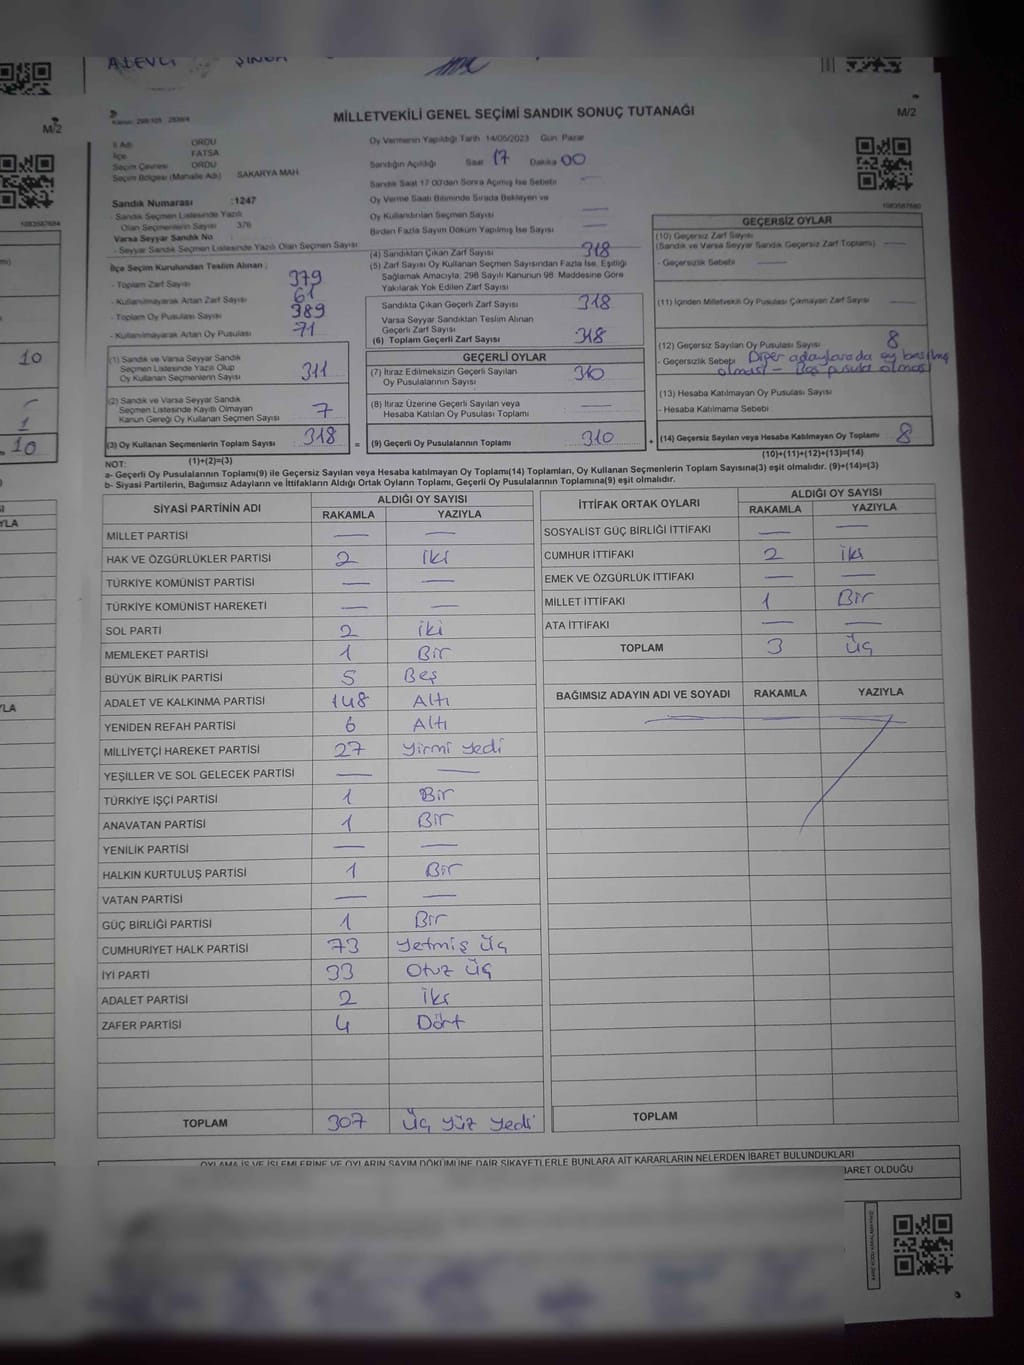 M/2
10
1
10
MİLLETVEKİLİ GENEL SEÇİMİ SANDIK SONUÇ TUTANAĞI
M/2
İl Adı : ORDU
İlçe : FATSA
Seçim Çevresi : ORDU
Seçim Bölgesi (Mahalle Adı) : SAKARYA MAH
Oy Vermenin Yapıldığı Tarih 14/05/2023 Gün Pazar
Sandığın Açıldığı Saat 17 Dakika 00
Sandık Saat 17.00'den Sonra Açılmış İse Sebebi
Oy Verme Saati Bitiminde Sırada Bekleyen ve
Oy Kullandırılan Seçmen Sayısı
Birden Fazla Sayım Döküm Yapılmış İse Sayısı
Sandık Numarası :1247
- Sandık Seçmen Listesinde Yazılı
Olan Seçmenlerin Sayısı : 376
Varsa Seyyar Sandık No :
- Seyyar Sandık Seçmen Listesinde Yazılı Olan Seçmen Sayısı:
İlçe Seçim Kurulundan Teslim Alınan ;
- Toplam Zarf Sayısı : 379
- Kullanılmayarak Artan Zarf Sayısı : 61
- Toplam Oy Pusulası Sayısı : 389
- Kullanılmayarak Artan Oy Pusulası : 71
(1) Sandık ve Varsa Seyyar Sandık
Seçmen Listesinde Yazılı Olup
Oy Kullanan Seçmenlerin Sayısı 311
(2) Sandık ve Varsa Seyyar Sandık
Seçmen Listesinde Kayıtlı Olmayan
Kanun Gereği Oy Kullanan Seçmen Sayısı 7
(3) Oy Kullanan Seçmenlerin Toplam Sayısı 318
(4) Sandıktan Çıkan Zarf Sayısı 318
(5) Zarf Sayısı Oy Kullanan Seçmen Sayısından Fazla İse, Eşitliği
Sağlamak Amacıyla, 298 Sayılı Kanunun 98. Maddesine Göre
Yakılarak Yok Edilen Zarf Sayısı
Sandıkta Çıkan Geçerli Zarf Sayısı 318
Varsa Seyyar Sandıktan Teslim Alınan
Geçerli Zarf Sayısı
(6) Toplam Geçerli Zarf Sayısı 318
GEÇERLİ OYLAR
(7) İtiraz Edilmeksizin Geçerli Sayılan
Oy Pusulalarının Sayısı 310
(8) İtiraz Üzerine Geçerli Sayılan veya
Hesaba Katılan Oy Pusulası Toplamı
= (9) Geçerli Oy Pusulalarının Toplamı 310
GEÇERSİZ OYLAR
(10) Geçersiz Zarf Sayısı
(Sandık ve Varsa Seyyar Sandık Geçersiz Zarf Toplamı)
- Geçersizlik Sebebi
(11) İçinden Milletvekili Oy Pusulası Çıkmayan Zarf Sayısı
(12) Geçersiz Sayılan Oy Pusulası Sayısı 8
- Geçersizlik Sebebi Diğer adaylarada oy basılmış
olması - Boş pusula olması
(13) Hesaba Katılmayan Oy Pusulası Sayısı
- Hesaba Katılmama Sebebi
+ (14) Geçersiz Sayılan veya Hesaba Katılmayan Oy Toplamı 8
NOT: (1)+(2)=(3)
(10)+(11)+(12)+(13)=(14)
a- Geçerli Oy Pusulalarının Toplamı(9) ile Geçersiz Sayılan veya Hesaba katılmayan Oy Toplamı(14) Toplamları, Oy Kullanan Seçmenlerin Toplam Sayısına(3) eşit olmalıdır. (9)+(14)=(3)
b- Siyasi Partilerin, Bağımsız Adayların ve İttifakların Aldığı Ortak Oyların Toplamı, Geçerli Oy Pusulalarının Toplamına(9) eşit olmalıdır.
SİYASİ PARTİNİN ADI ALDIĞI OY SAYISI
RAKAMLA YAZIYLA
MİLLET PARTİSİ — —
HAK VE ÖZGÜRLÜKLER PARTİSİ 2 İki
TÜRKİYE KOMÜNİST PARTİSİ — —
TÜRKİYE KOMÜNİST HAREKETİ — —
SOL PARTİ 2 iki
MEMLEKET PARTİSİ 1 Bir
BÜYÜK BİRLİK PARTİSİ 5 Beş
ADALET VE KALKINMA PARTİSİ 148 Altı
YENİDEN REFAH PARTİSİ 6 Altı
MİLLİYETÇİ HAREKET PARTİSİ 27 Yirmi Yedi
YEŞİLLER VE SOL GELECEK PARTİSİ — —
TÜRKİYE İŞÇİ PARTİSİ 1 Bir
ANAVATAN PARTİSİ 1 Bir
YENİLİK PARTİSİ — —
HALKIN KURTULUŞ PARTİSİ 1 Bir
VATAN PARTİSİ — —
GÜÇ BİRLİĞİ PARTİSİ 1 Bir
CUMHURİYET HALK PARTİSİ 73 Yetmiş Üç
İYİ PARTİ 33 Otuz Üç
ADALET PARTİSİ 2 İki
ZAFER PARTİSİ 4 Dört
TOPLAM 307 Üç Yüz Yedi
İTTİFAK ORTAK OYLARI ALDIĞI OY SAYISI
RAKAMLA YAZIYLA
SOSYALİST GÜÇ BİRLİĞİ İTTİFAKI — —
CUMHUR İTTİFAKI 2 iki
EMEK VE ÖZGÜRLÜK İTTİFAKI — —
MİLLET İTTİFAKI 1 Bir
ATA İTTİFAKI — —
TOPLAM 3 Üç
BAĞIMSIZ ADAYIN ADI VE SOYADI RAKAMLA YAZIYLA
TOPLAM
OYLAMA İŞ VE İŞLEMLERİNE VE OYLARIN SAYIM DÖKÜMÜNE DAİR ŞİKAYETLERLE BUNLARA AİT KARARLARIN NELERDEN İBARET BULUNDUKLARI
İBARET OLDUĞU